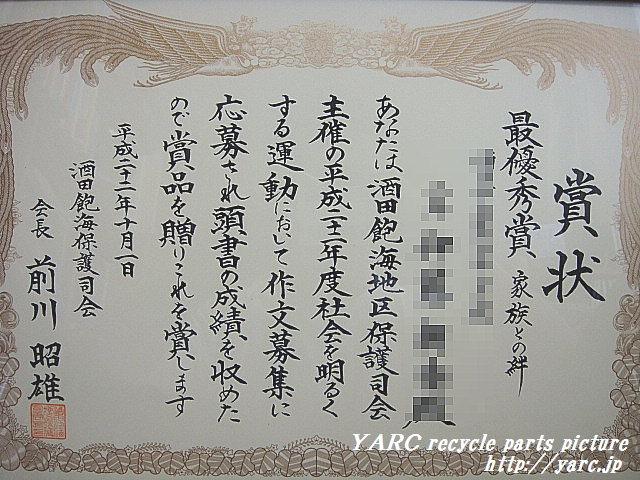 賞状
最優秀賞 家族との絆
あなたは酒田飽海地区保護司会
主催の平成二十二年度社会を明るく
する運動において作文募集に
応募され頭書の成績を収めた
ので賞品を贈りこれを賞します
平成二十二年十月一日
酒田飽海保護司会
会長 前川 昭雄
YARC recycle parts picture
http://yarc.jp